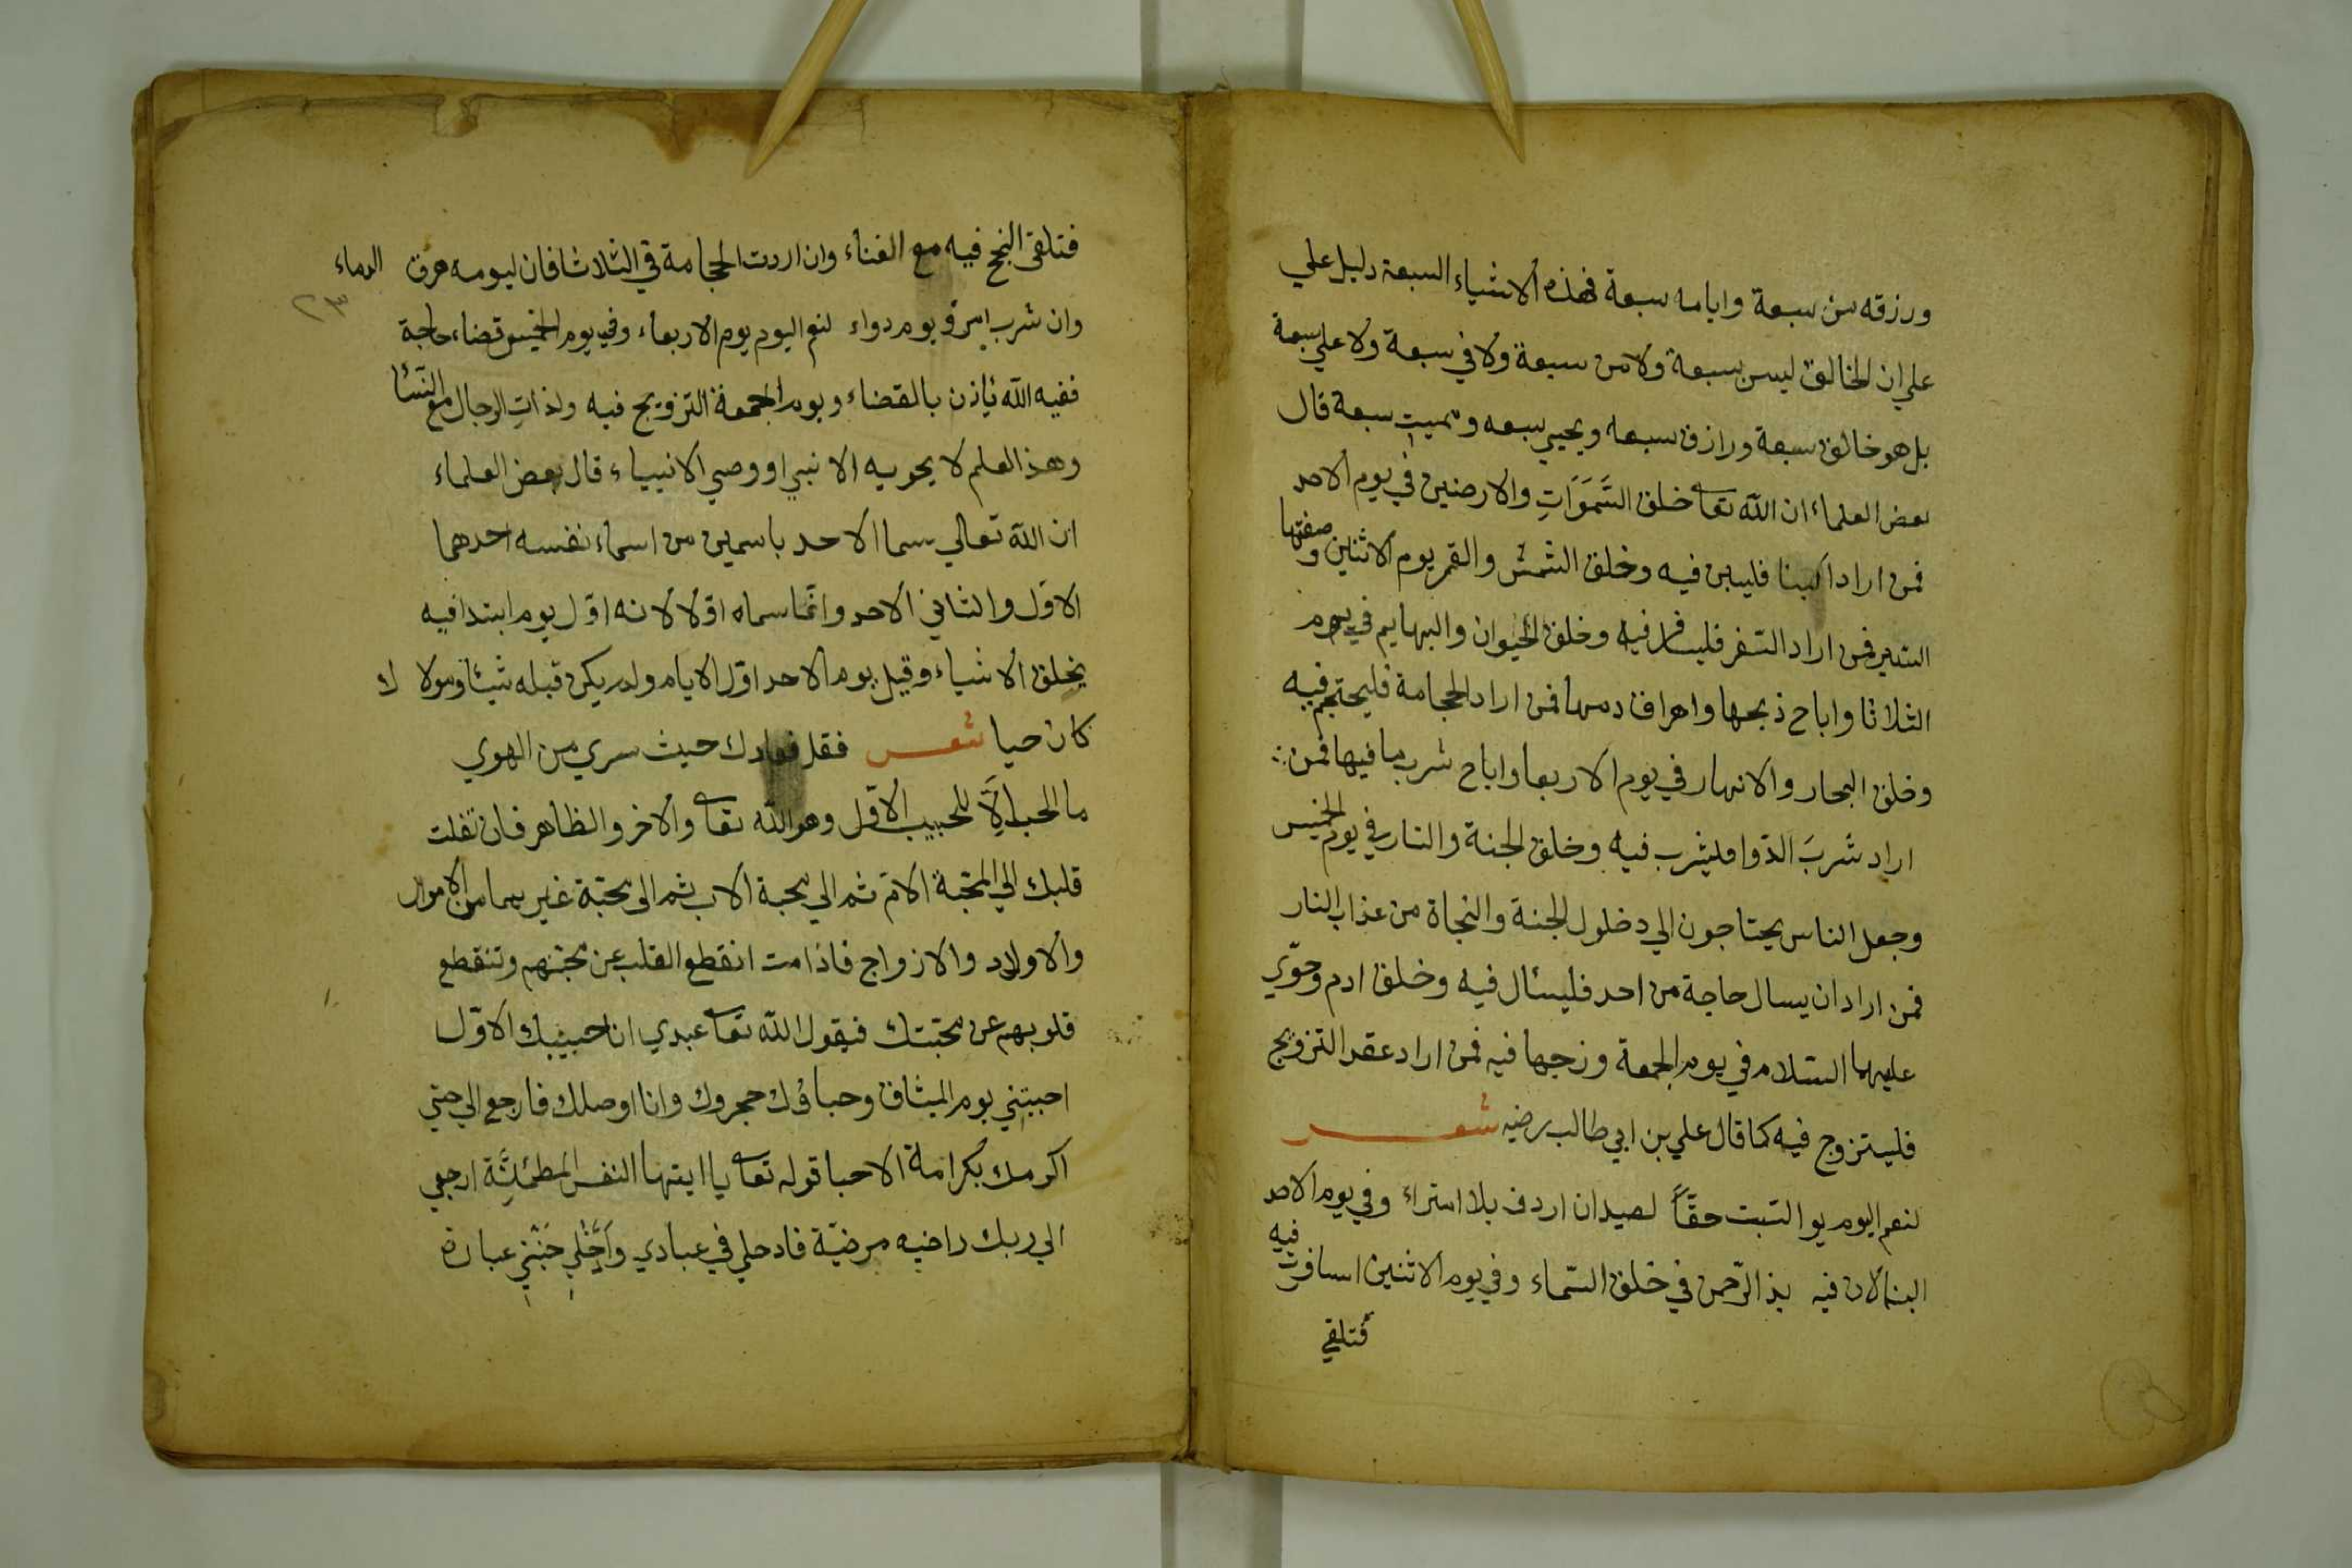 ورزقه من سبعة وايامه سبعة فهذه الاشياء السبعة دليل علي
علي ان الخالق ليس بسبعة ولا من سبعة ولا في سبعة ولا علي سبعة
بل هو خالق سبعة ورازق سبعه ويحيي سبعه ومميت سبعة قال
بعض العلماء ان الله تعا خلق السَّمَوَاتِ والارضين في يوم الاحد
فمن اراد البنا فليبن فيه وخلق الشمس والقمر يوم الاثنين وصفتها
السير فمن اراد السفر فليسافر فيه وخلق الحيوان والبهايم في يوم
الثلاثا واباح ذبحها واهراق دمها فمن اراد الحجامة فليحتجم فيه
وخلق البحار والانهار في يوم الاربعا واباح شرب ما فيها فمن
اراد شربَ الدّوا فليشرب فيه وخلق الجنة والنار في يوم الخميس
وجعل الناس يحتاجون الي دخلول الجنة والنجاة من عذاب النار
فمن اراد ان يسال حاجة من احد فليسأل فيه وخلق ادم وحوّي
عليهما السّلام في يوم الجمعة وزجها فيه فمن اراد عقد التزويج
فليتزوج فيه كما قال علي بن ابي طالب رضيه شعر
لنعم اليوم يو السّبت حقّاً لصيد ان اردف بلا امتراء وفي يوم الاحد
البنا لان فيه بذ الرّحمن في خلق السّماء وفي يوم الاثنين اسافرت فيه
فتلقي
فتلقي النجح فيه مع الغناء وان اردت الحجامة في الثلاثا فان ليومه هرق الدماء
٢٣
وان شرب امرؤ يوم دواء لنعم اليوم يوم الاربعاء وفي يوم الخميس قضاء حاجة
ففيه الله ياذن بالقضاء ويوم الجمعة التزويج فيه ولذاتِ الرجال مع النّسا
وهذ العلم لا يحويه الا نبي او وصي الانبياء قال بعض العلماء
ان الله تعالي سما الاحد باسمين من اسماء نفسه احدهما
الاوّل والثاني الاحد وانّما سماه اوّلا لانه اوّل يوم ابتدا فيه
يخلق الاشياء وقيل يوم الاحد اوّل الايام ولم يكن قبله شيئا ومولاك
كان حيا شعر فقل فوادك حيث سري من الهوي
ما الحب الَّا للحبيب الاوّل وهو الله تعا والاخر والظاهر فان نقلت
قلبك الي المحبّة الامّ ثم الي محبة الاب ثم الي محبّة غيرهما من الاموال
والاولاد والازواج فاذا مت انقطع القلب عن محبّتهم وتنقطع
قلوبهم عن محبّتك فيقول الله تعا عبدي انا حبيبك الاوّل
احببتني يوم الميثاق وحباؤك هجروك وانا اوصلك فارجع الي حتي
اكرمك بكرامة الاحبا قوله تعا يا ايتها النفس المطمئنّة ارجعي
الي ربك راضيه مرضيّة فادخلي في عبادي وَادْخُلِي جَنّتي عبارة